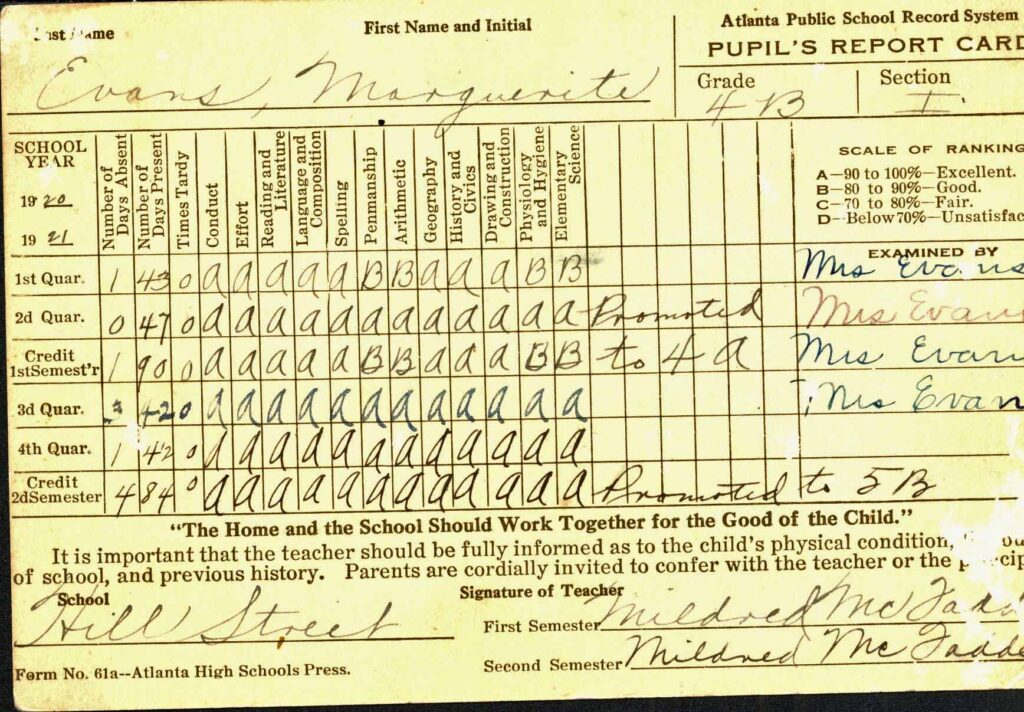 Last Name First Name and Initial Atlanta Public School Record System
PUPIL'S REPORT CARD
Evans, Marguerite
Grade Section
4 B I
SCHOOL YEAR
1920
1921
Number of Days Absent
Number of Days Present
Times Tardy
Conduct
Effort
Reading and Literature
Language and Composition
Spelling
Penmanship
Arithmetic
Geography
History and Civics
Drawing and Construction
Physiology and Hygiene
Elementary Science
SCALE OF RANKING
A—90 to 100%—Excellent.
B—80 to 90%—Good.
C—70 to 80%—Fair.
D—Below 70%—Unsatisfac
EXAMINED BY
1st Quar. 1 43 0 a a a a a B B a a a B B Mrs Evans
2d Quar. 0 47 0 a a a a a a a a a a a a Promoted Mrs Evans
Credit 1stSemest'r 1 90 0 a a a a a B B a a a B B to 4 a Mrs Evans
3d Quar. 3 42 0 a a a a a a a a a a a a Mrs Evan
4th Quar. 1 42 0 a a a a a a a a a a a a
Credit 2dSemester 4 84 0 a a a a a a a a a a a a Promoted to 5 B
"The Home and the School Should Work Together for the Good of the Child."
It is important that the teacher should be fully informed as to the child's physical condition,
of school, and previous history. Parents are cordially invited to confer with the teacher or the
School Signature of Teacher
Hill Street First Semester Mildred McFadd
Form No. 61a--Atlanta High Schools Press. Second Semester Mildred McFadde